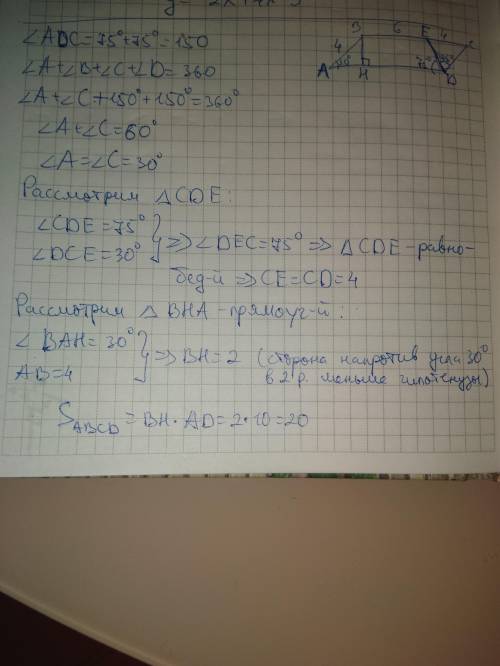 ∠ADC=75°+75°=150
∠A+∠B+∠C+∠D=360
∠A+∠C+150°+150°=360°
∠A+∠C=60°
∠A=∠C=30°
Рассмотрим △CDE:
∠CDE=75°
∠DCE=30° } => ∠DEC=75° => △CDE-равно-
бед-й => CE=CD=4
Рассмотрим △BHA-прямоуг-й:
∠BAH=30°
AB=4 } => BH=2 (сторона напротив угла 30°
в 2 р. меньше гипотенузы)
S ABCD = BH·AD=2·10=20
B 6 E 4
4
A H D